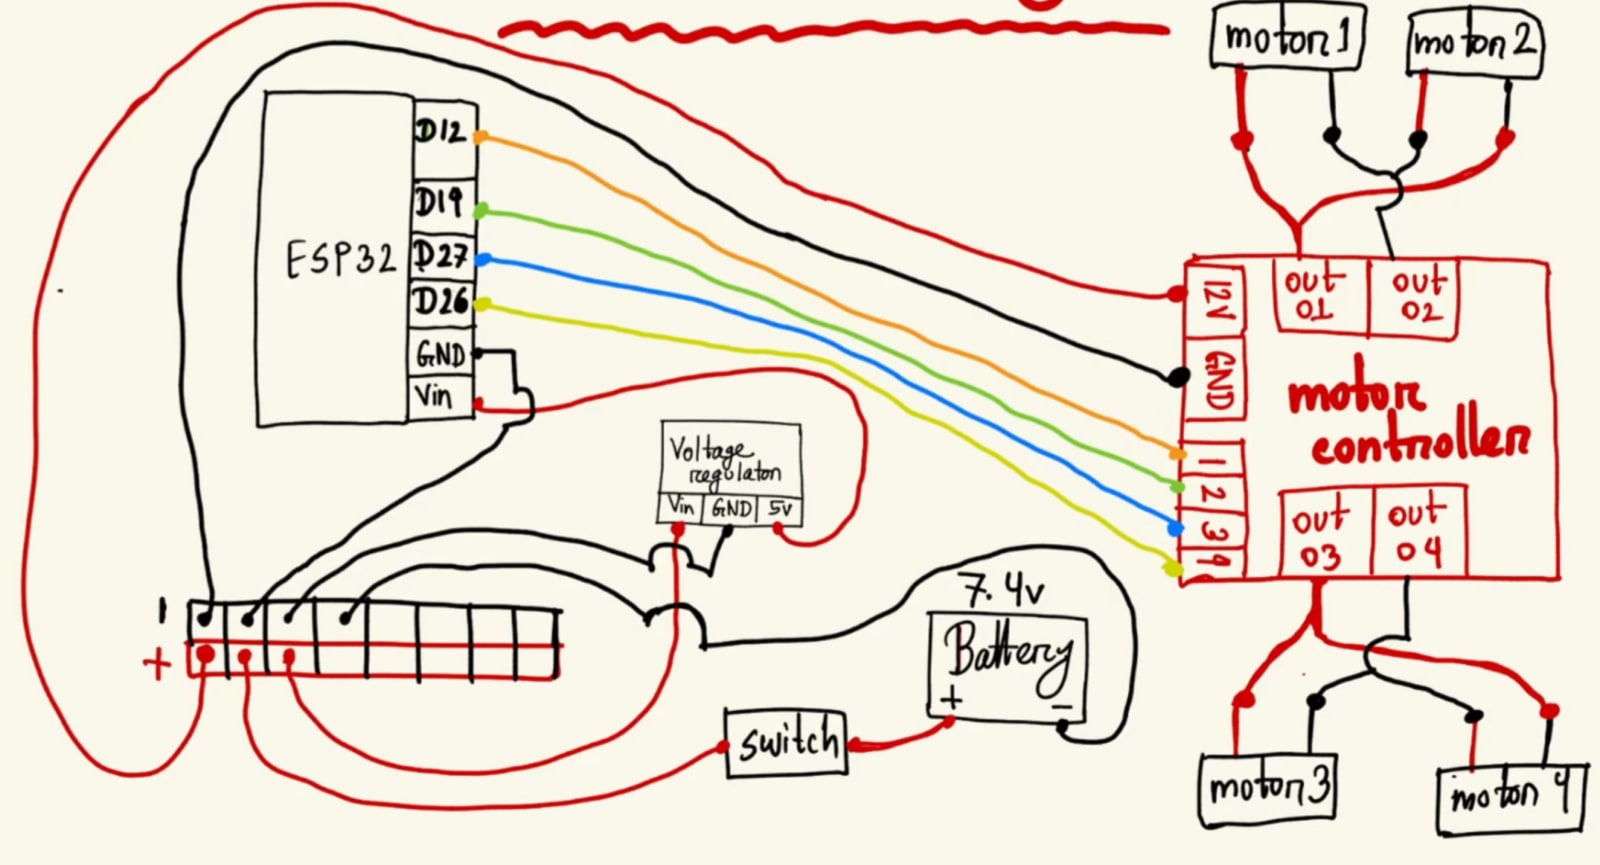 motor1
motor2
D12
D19
D27
D26
GND
Vin
ESP32
12V
GND
1
2
3
4
out
01
out
02
motor
controller
out
03
out
04
Voltage
regulator
Vin
GND
5v
7.4v
Battery
+
-
switch
-
+
motor3
motor 4